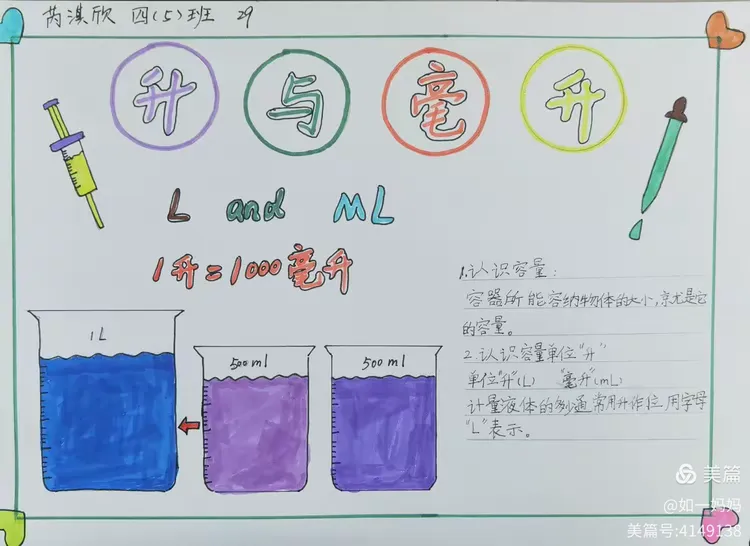 芮淇欣 四(5)班 29
升与毫升
L and ML
1升=1000毫升
1L
500ml
500ml
1.认识容量:
容器所能容纳物体的大小,就是它
的容量。
2.认识容量单位"升"
单位"升"(L) "毫升"(mL)
计量液体的多少,通常用升作单位,用字母
"L"表示。
美篇
@如一妈妈
美篇号:4149138